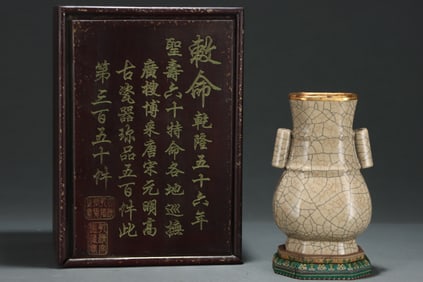 敕命乾隆五十六年
聖壽六十特命各地巡撫
廣搜博采唐宋元明高
古瓷器珍品五百件此
第三百五十件